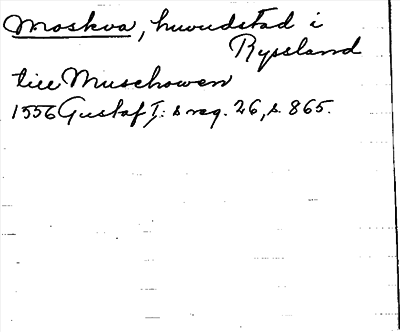 Moskva, huvudstad i
Ryssland
till Muschowen
1556 Gustaf I: s reg. 26, s. 865.